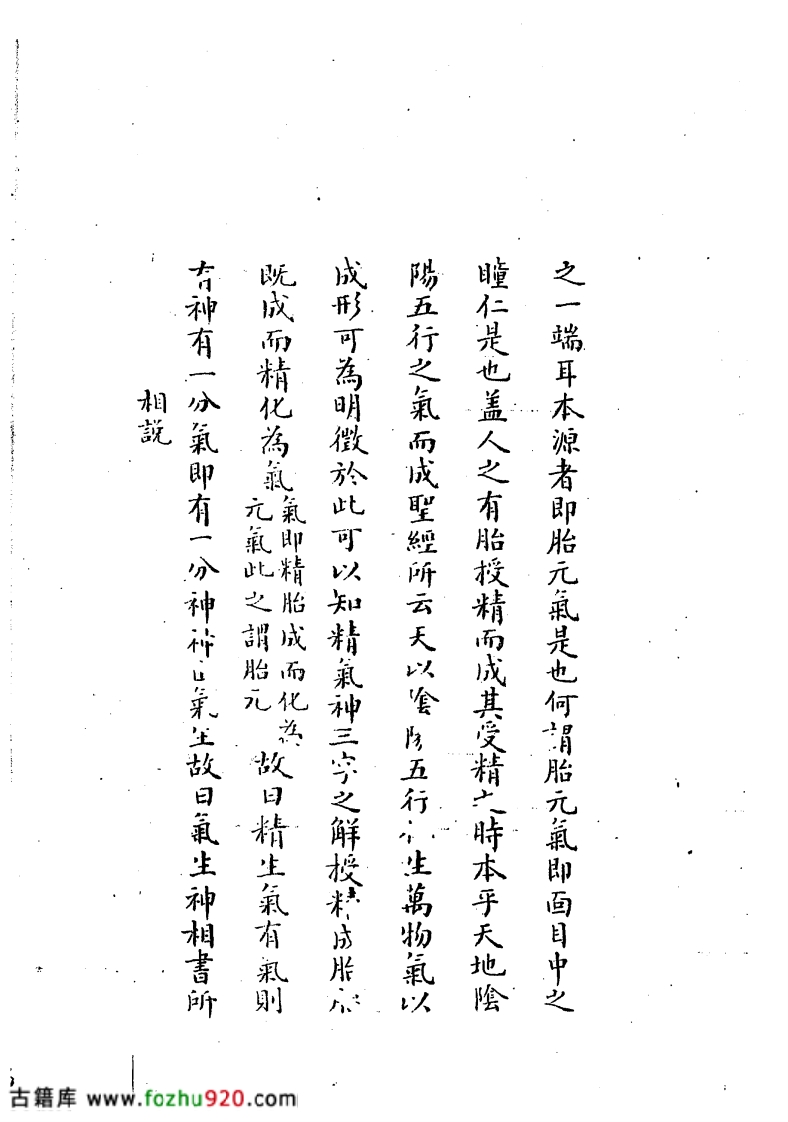 之一端耳本源者即胎元氣是也何謂胎元氣即面目中之
瞳仁是也盖人之有胎授精而成其受精之時本乎天地陰
陽五行之氣而成聖經所云天以陰陽五行生萬物氣以
成形可為明徵於此可以知精氣神三字之解授精成胎
既成而精化為氣
氣即精胎成而化為
元氣此之謂胎元
故曰精生氣有氣則
有神有一分氣即有一分神神氣生故曰氣生神相書所
相説
古籍库 www.fozhu920.com